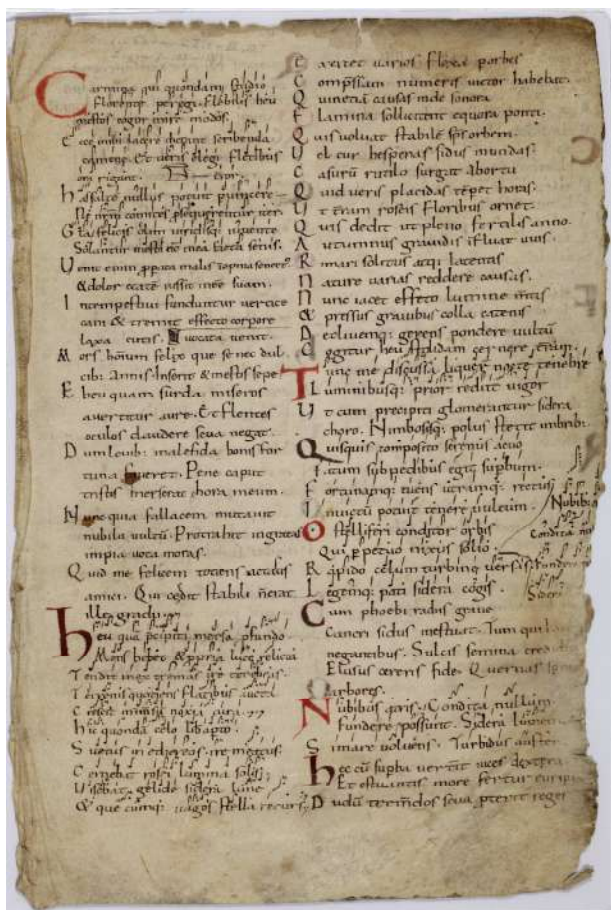 Carmina qui quondam studio
Florente peregi. Flebilis heu
mestos cogor inire modos.
Ecce mihi lacere dictant scribenda
camene. Et veris elegi fletibus
ora rigant.
has saltem nullus potuit pvincere
Ne nrm comites psequerentur iter
Gloria felicis olim viridisq; iuvente
Solantur mesti nc mea fata senis.
Venit enim pperata malis
& dolor etate iussit inee suam.
Intempestivi funduntur vertice
cani & tremit effecto corpore
laxa cutis. vocata venit.
Mors hominum felix que se nec dul
cib; Annis Inserit & mestis sepe
Eheu quam surda miseros
avertitur aure. Et flentes
oculos claudere seva negat.
Dum levib; malefida bonis for
tuna faveret. Pene caput
tristis merserat hora meum.
Nunc quia fallacem mutavit
nubila vultu. Protrahit ingratas
impia vota moras.
Quid me felicem totiens
amici. Qui cedit stabili n erat
ille gradu.
heu qua pcipiti mersa pfundo
Mens hebet & ppria luce relicta
Tendit in externas ire tenebras
Terrenis quociens flatibus aucta
Crescit in inmensu noxia cura
hic quonda celo libero
Suetus in ethereos ire meatus
Cernebat rosei lumina solis;
Visebat gelide sidera lune
& que cumq; vagos stella recurs;
Exercet varios flexa porbes
Compssam numeris victor habebat.
Quinetia causas unde sonora
Flamina sollicitent equora ponti.
Quis volvat stabile sps orbem.
Vel cur hesperias sidus in undas
Casuru rutilo surgat abortu
Quid veris placidas tepet horas.
Ut terram roseis floribus ornet
Quis dedit ut pleno fertilis anno
Autumnus gravidis influat uvis
Rimari solitus atq; latentis
Nature varias reddere causas.
Nunc iacet effeto lumine mtis
& pressus gravibus colla catenis
Declivemq; gerens pondere vultu
Cogitur heu stolidam cernere terram
Tunc me discussa liquer nocte tenebre
Luminibusq; prior rediit vigor
Ut cum precipiti glomerantur sidera
choro. Nimbosisq; polus stetit imbrib;
Quisquis composito serenus aevo
Fatum sub pedibus egit supbum.
Fortunamq; tuens utramq; rectus
Invictu potuit tenere vultum.
O stelliferi conditor orbis
Qui ppetuo nixus solio
Rapido celum turbine versas
Legemq; pati sidera cogis.
Cum phoebi radiis grave
Cancri sidus inestuat. Tum qui
negantibus. Sulcis semina
Elusus cereris fide. Quernas
arbores.
Nubibus atris. Condita nullum
Fundere possunt. Sidera lumen
Si mare volvens. Turbidus auster
hec cu supba verterit vices dextera
Et estuantis more fertur
Dudu tremdos seva pterit reges
Nubibus
Condita
Fundere
Sidera